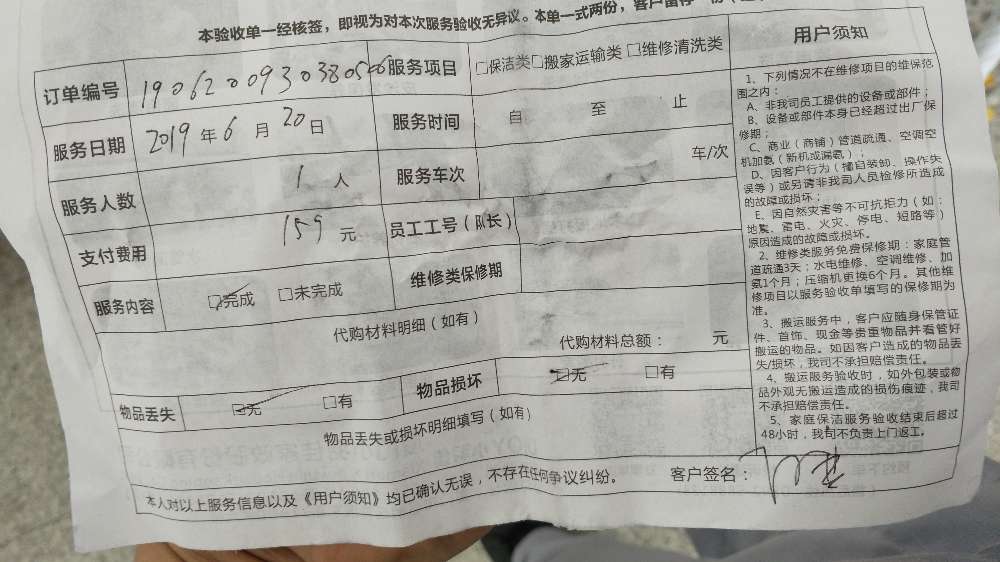 本验收单一经核签，即视为对本次服务验收无异议。本单一式两份，客户留存一份
订单编号 服务项目 □保洁类 □搬家运输类 □维修清洗类
服务日期 2019年6月20日 服务时间 自 至 止
服务人数 1人 服务车次 车/次
支付费用 159元 员工工号（队长）
服务内容 ☑完成 □未完成 维修类保修期
代购材料明细（如有） 代购材料总额： 元
物品丢失 ☑无 □有 物品损坏 ☑无 □有
物品丢失或损坏明细填写（如有）
本人对以上服务信息以及《用户须知》均已确认无误，不存在任何争议纠纷。 客户签名：
用户须知
1、下列情况不在维修项目的维保范
围之内：
A、非我司员工提供的设备或部件；
B、设备或部件本身已经超过出厂保
修期；
C、商业（商铺）管道疏通、空调空
机加氨（新机或漏氨）；
D、因客户行为（擅自装卸、操作失
误等）或另请非我司人员检修所造成
的故障或损坏；
E、因自然灾害等不可抗拒力（如：
地震、雷电、火灾、停电、短路等）
原因造成的故障或损坏。
2、维修类服务免费保修期：家庭管
道疏通3天；水电维修、空调维修、加
氨1个月；压缩机更换6个月。其他维
修项目以服务验收单填写的保修期为
准。
3、搬运服务中，客户应随身保管证
件、首饰、现金等贵重物品并看管好
搬运的物品。如因客户造成的物品丢
失/损坏，我司不承担赔偿责任。
4、搬运服务验收时，如外包装或物
品外观无搬运造成的损伤痕迹，我司
不承担赔偿责任。
5、家庭保洁服务验收结束后超过
48小时，我司不负责上门返工。